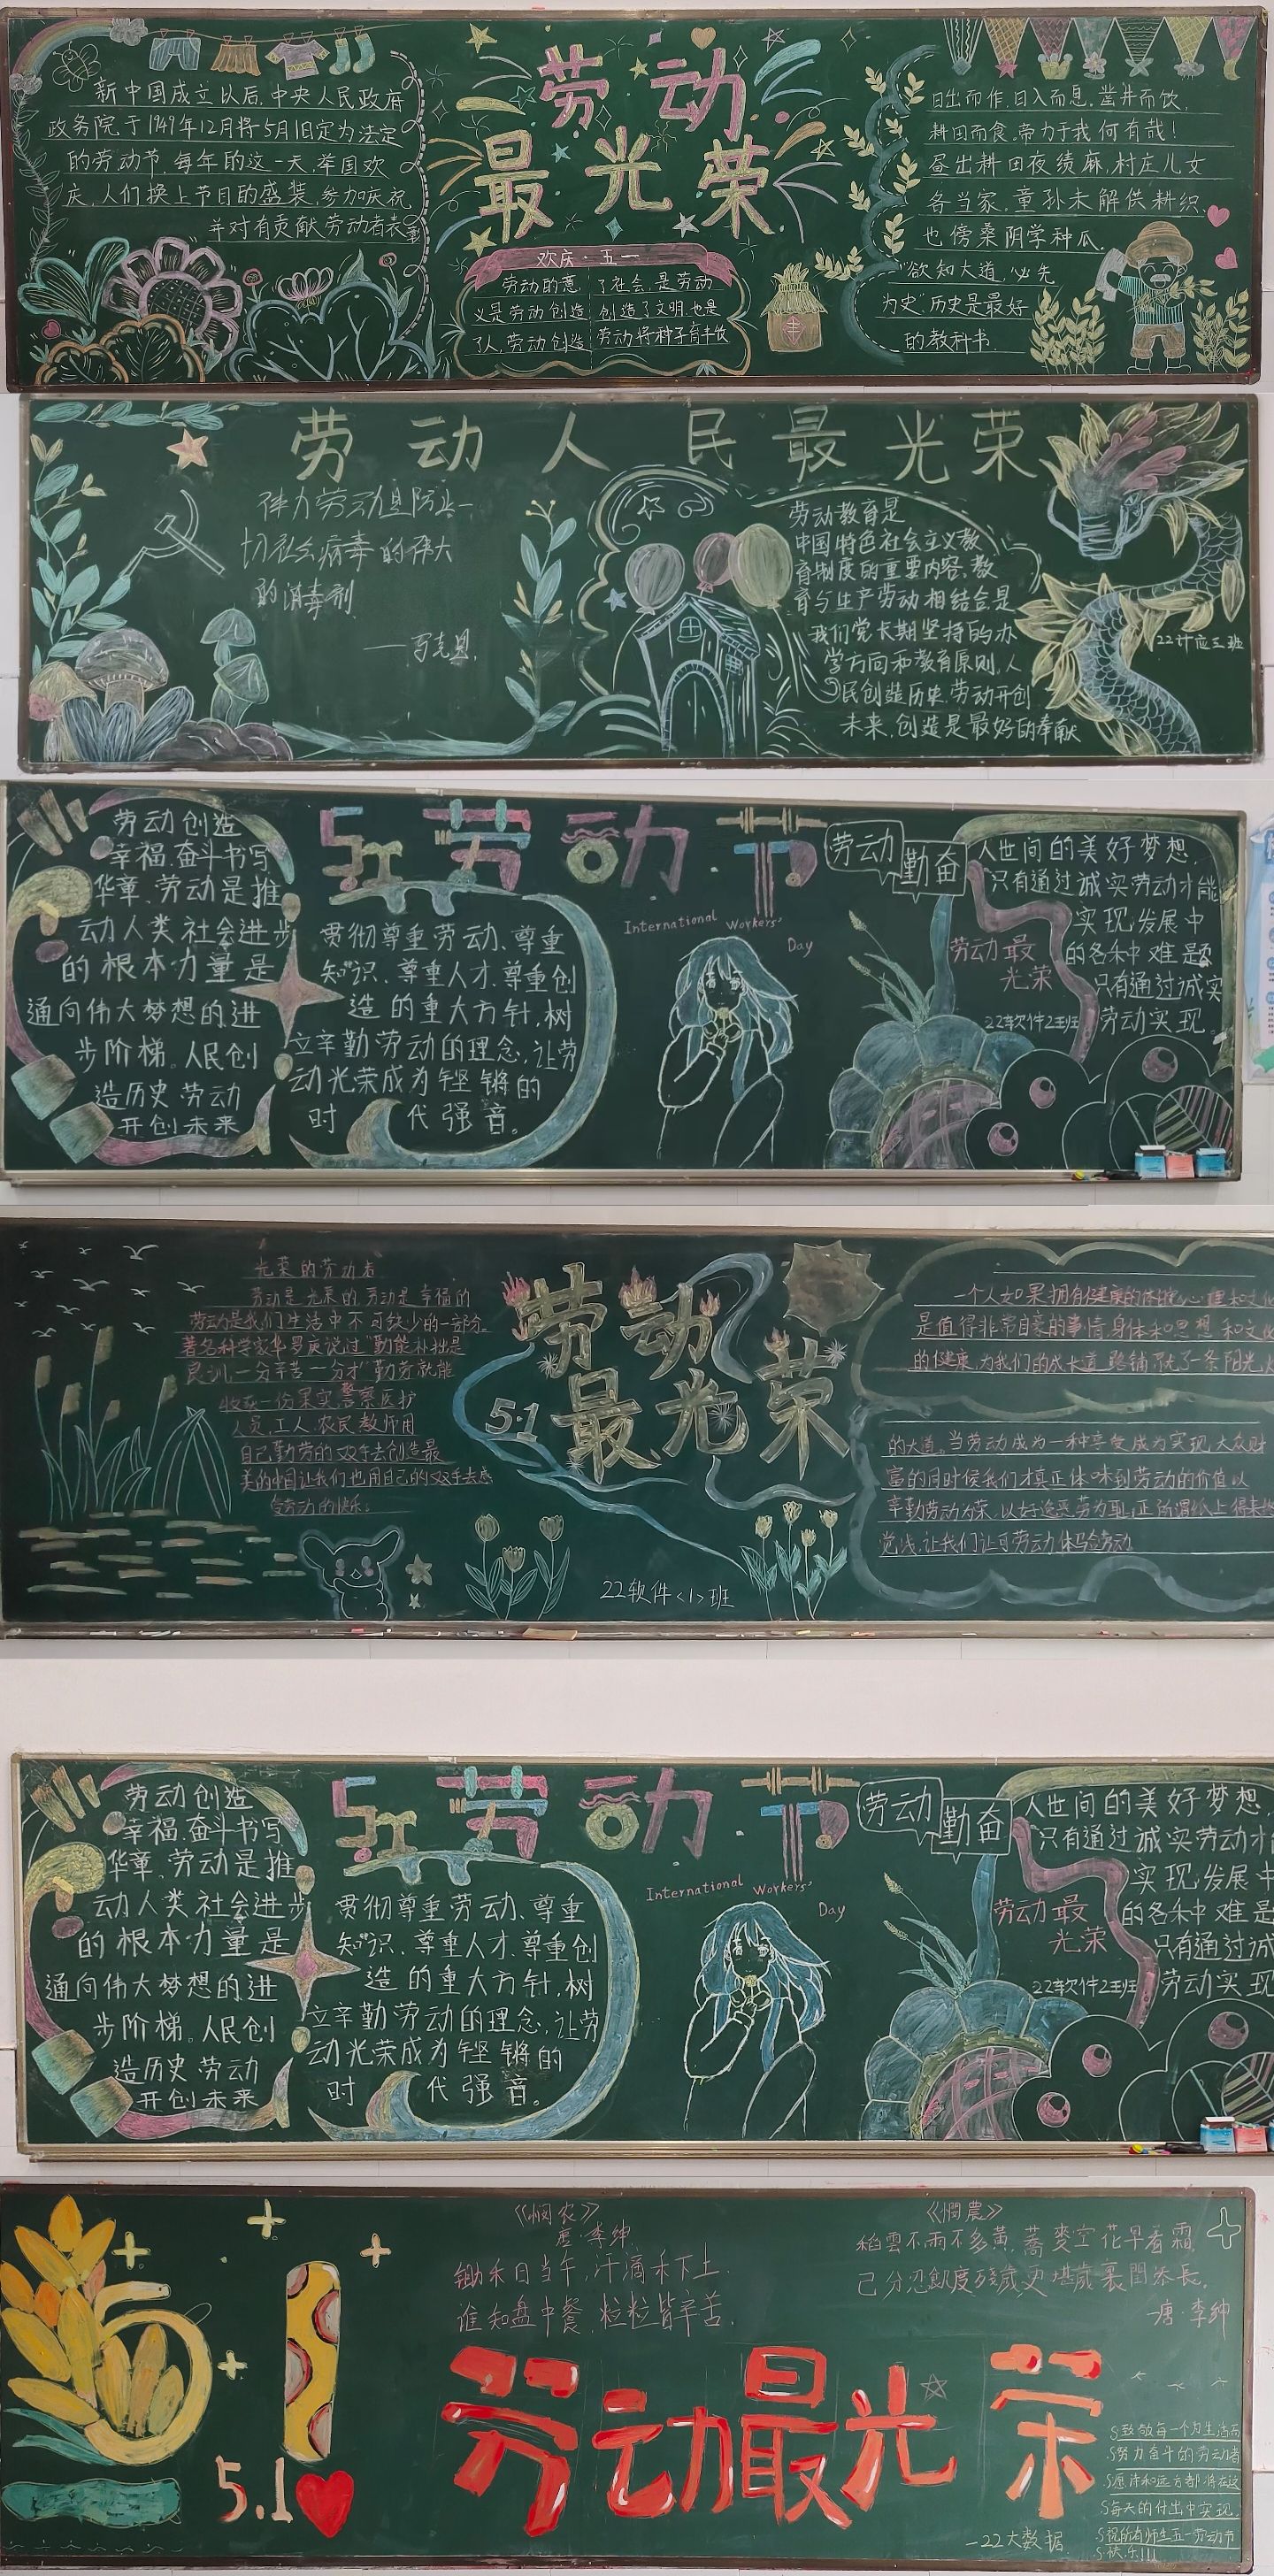 劳动
最光荣
新中国成立以后,中央人民政府
政务院于1949年12月将5月1日定为法定
的劳动节,每年的这一天,举国欢
庆,人们换上节目的盛装,参加庆祝
并对有贡献劳动者表彰
欢庆·五一
劳动的意
义是劳动创造
了人,劳动创造
了社会,是劳动
创造了文明,也是
劳动将种子育丰饮
日出而作,日入而息,凿井而饮,
耕田而食,帝力于我何有哉!
昼出耕田夜绩麻,村庄儿女
各当家,童孙未解供耕织,
也傍桑阴学种瓜.
"欲知大道,必先
为史"历史是最好
的教科书.
劳动人民最光荣
体力劳动是防止一
切社会病毒的伟大
的消毒剂
——马克思.
劳动教育是
中国特色社会主义教
育制度的重要内容,教
育与生产劳动相结合是
我们党长期坚持的办
学方向和教育原则,人
民创造历史,劳动开创
未来,创造是最好的奉献
22计应三班
劳动创造
幸福,奋斗书写
华章、劳动是推
动人类社会进步
的根本力量是
通向伟大梦想的进
步阶梯。人民创
造历史 劳动
开创未来
5.1劳动节
International Workers' Day
贯彻尊重劳动、尊重
知识、尊重人才、尊重创
造的重大方针,树
立辛勤劳动的理念,让劳
动光荣成为铿锵的
时代强音。
劳动
勤奋
人世间的美好梦想,
只有通过诚实劳动才能
实现,发展中
的各种难题
只有通过诚实
劳动实现。
劳动最
光荣
22软件2班
光荣的劳动者
劳动是光荣的,劳动是幸福的
劳动是我们生活中不可缺少的一部分
著名科学家华罗庚说过"勤能补拙是
良训,一分辛苦一分才"勤劳就能
收获一份果实,警察医护
人员,工人,农民,教师用
自己勤劳的双手去创造最
美的中国让我们也用自己的双手去感
受劳动的快乐。
劳动
最光荣
5·1
22软件<1>班
一个人如果拥有健康的体魄,心理和文化
是值得非常自豪的事情,身体和思想和文化
的健康,为我们的成长道路铺下了一条阳光
的大道。当劳动成为一种享受,成为实现大众财
富的同时候我们才真正体味到劳动的价值以
辛勤劳动为荣,以好逸恶劳为耻,正所谓纸上得来
觉浅,让我们让可劳动体验劳动
劳动创造
幸福,奋斗书写
华章、劳动是推
动人类社会进步
的根本力量是
通向伟大梦想的进
步阶梯。人民创
造历史 劳动
开创未来
5.1劳动节
International Workers' Day
贯彻尊重劳动、尊重
知识、尊重人才、尊重创
造的重大方针,树
立辛勤劳动的理念,让劳
动光荣成为铿锵的
时代强音。
劳动
勤奋
人世间的美好梦想,
只有通过诚实劳动才
实现,发展中
的各种难是
只有通过诚
劳动实现
劳动最
光荣
22软件2班
《悯农》
唐·李绅
锄禾日当午,汗滴禾下土.
谁知盘中餐,粒粒皆辛苦.
《憫農》
稻雲不雨不多黃,蕎麥空花早着霜
已分忍飢度殘歲,更堪歲裏閏添長.
—唐·李绅
5.1
劳动最光荣
致敬每一个为生活而
努力奋斗的劳动者
愿诗和远方都将在这
每天的付出中实现.
祝所有师生五一劳动节
快乐!!!
—22大数据